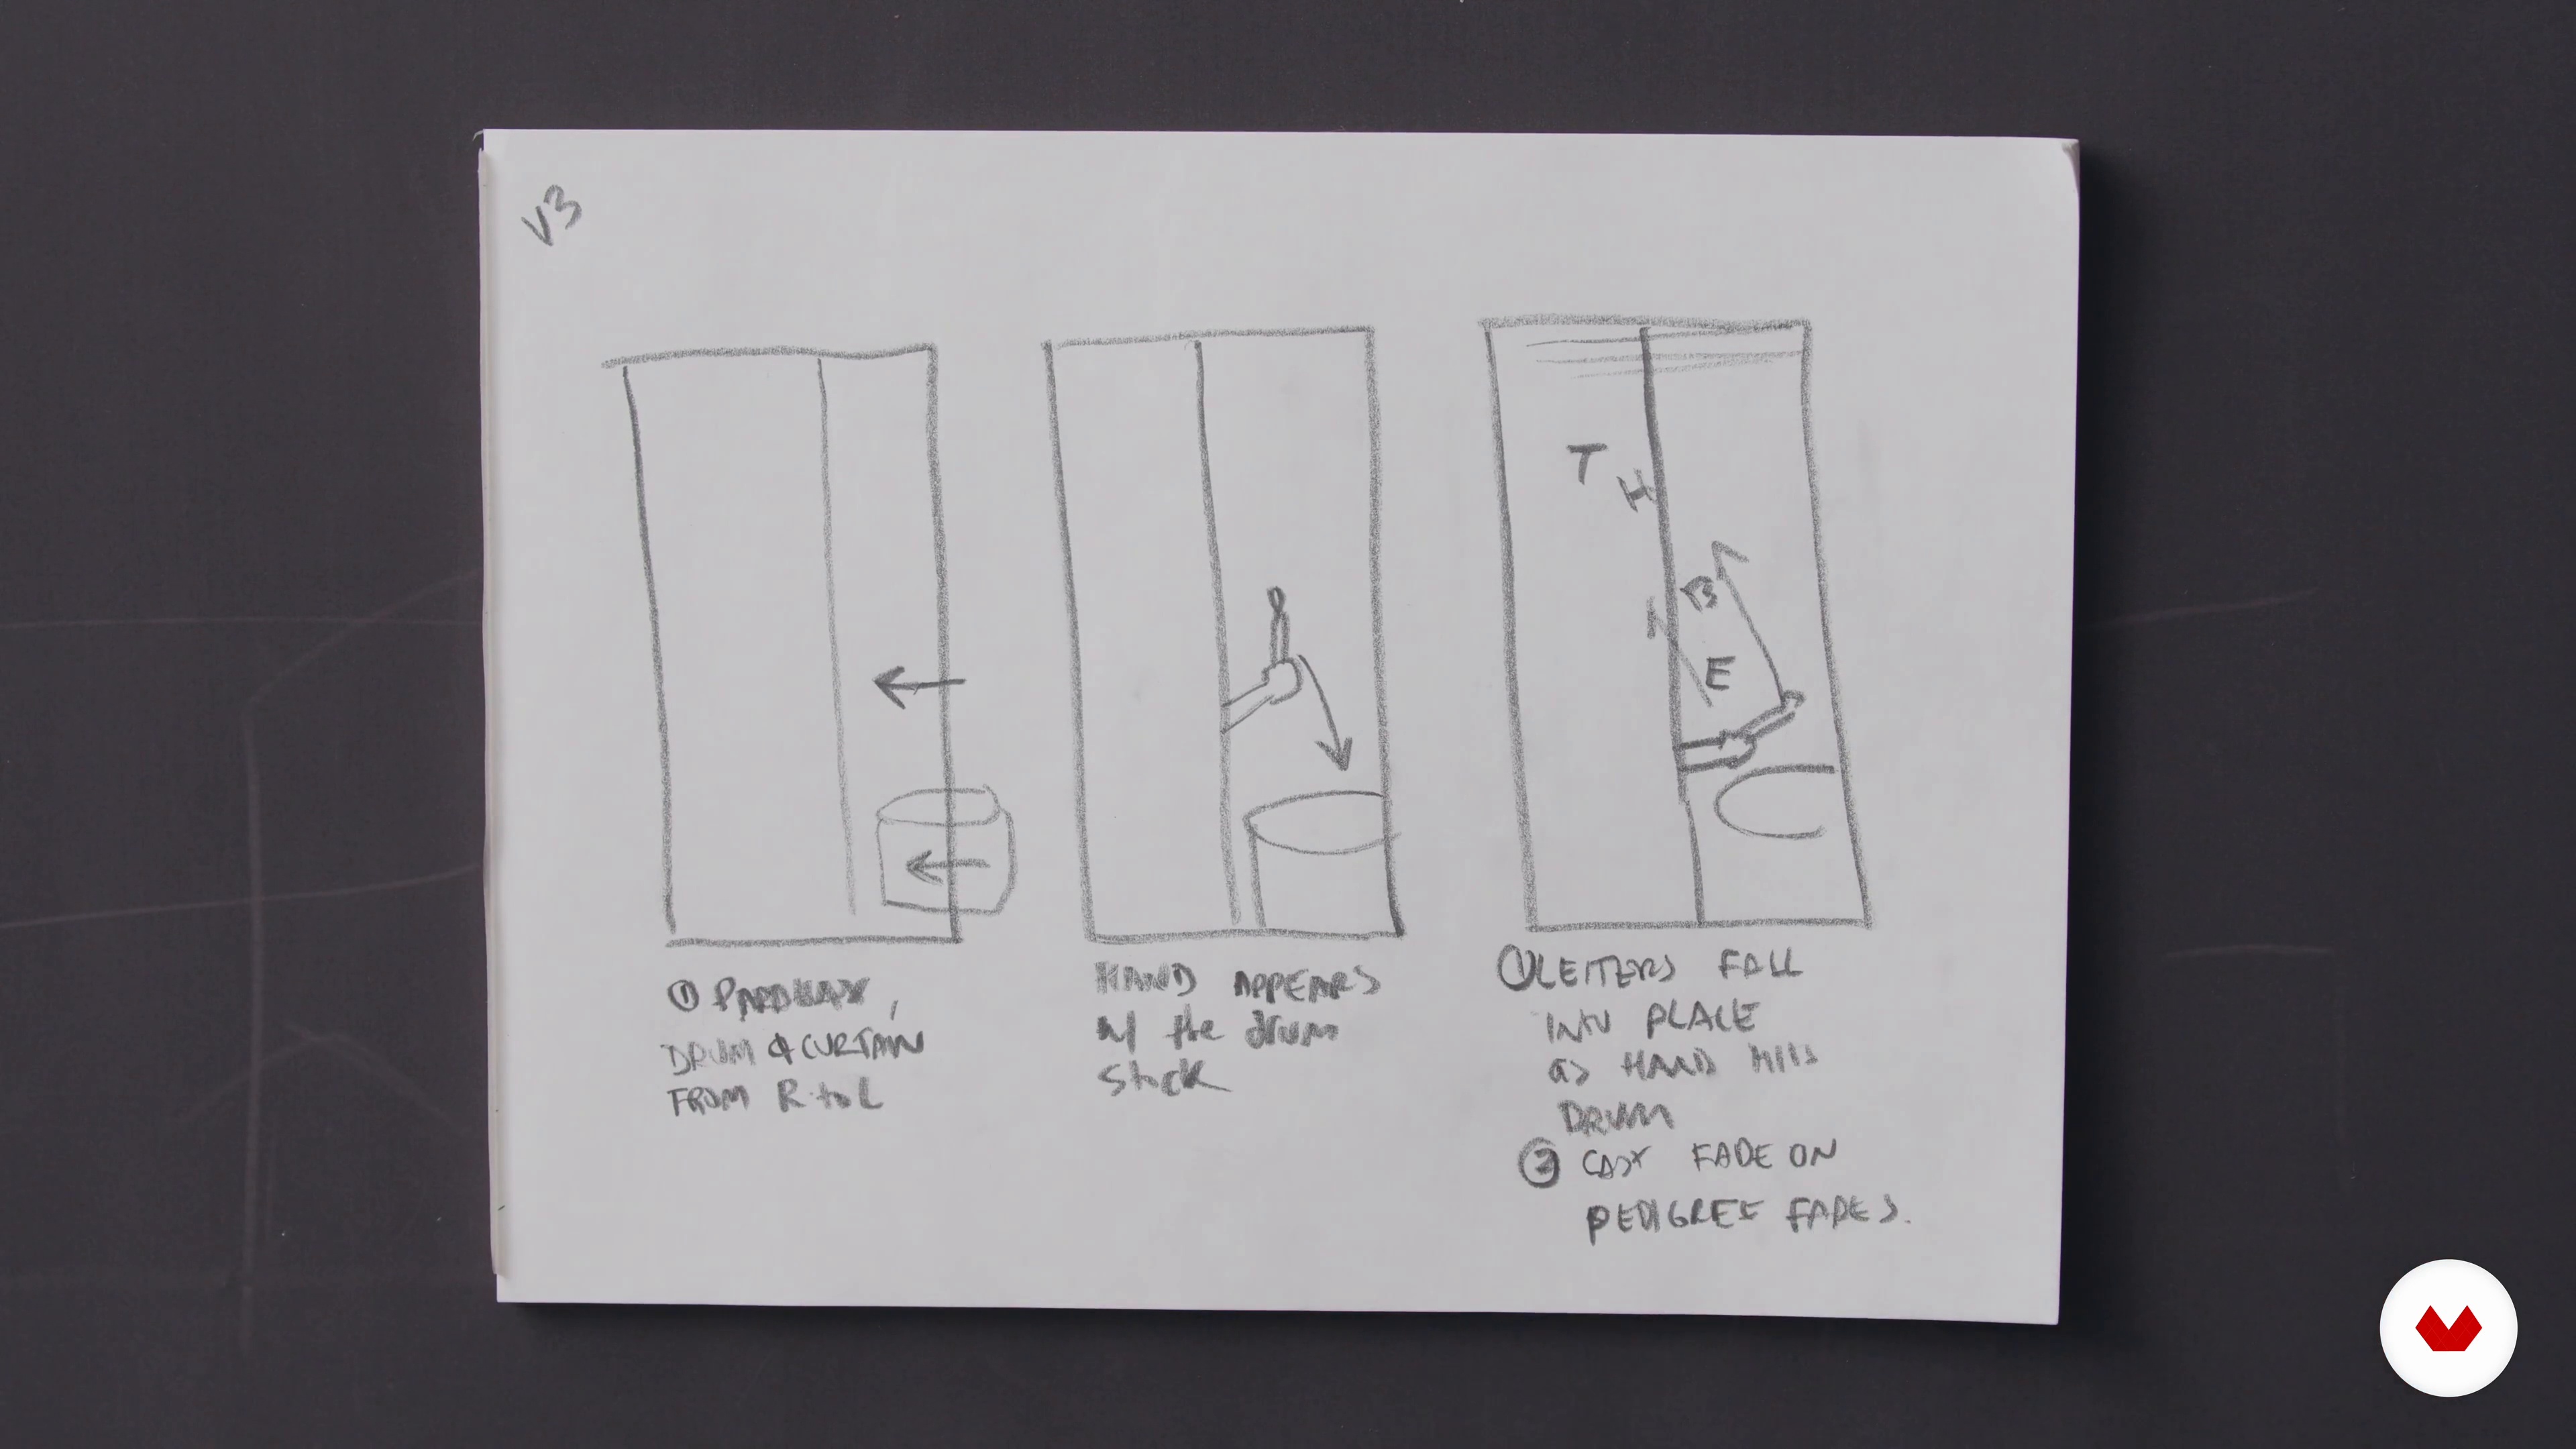 V3
T
H
B
E
① PARALLAX,
DRUM & CURTAIN
FROM R to L
HAND APPEARS
w/ the drum
stick
① LETTERS FALL
INTO PLACE
as HAND HITS
DRUM
② CAST FADE ON
PEDIGREE FADES.